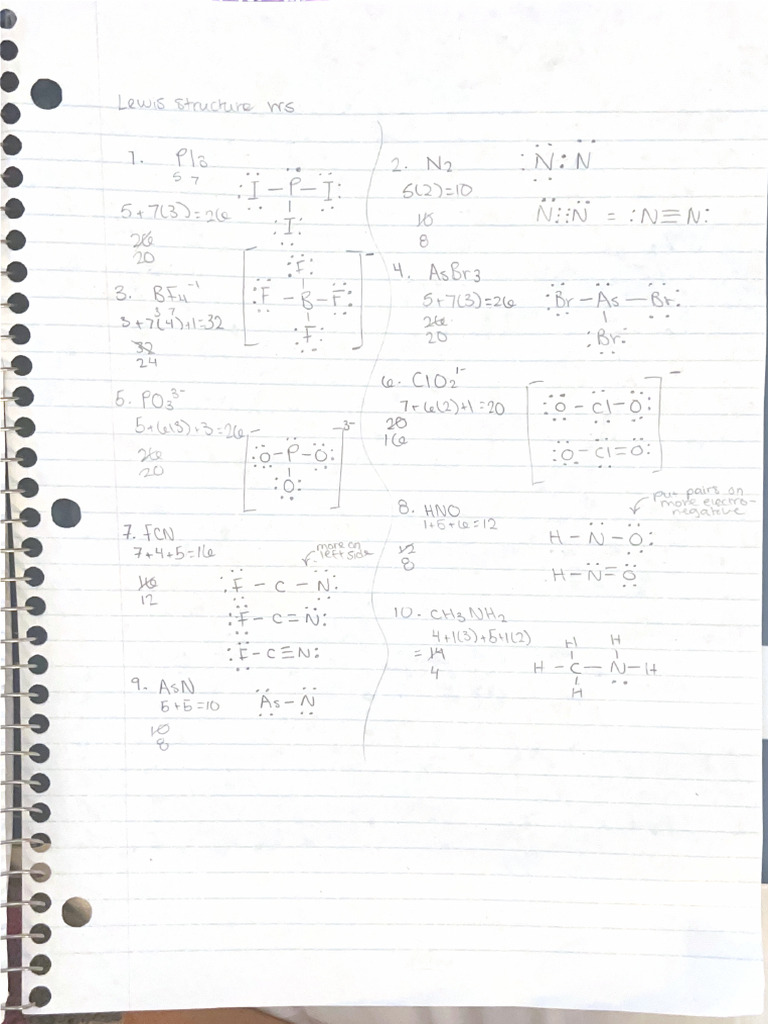 Lewis structure ws
1. PI3
5 7
5+7(3)=26
26
20
:I-P-I:
I:
2. N2
:N:N
5(2)=10
10
8
N⋮⋮N = :N≡N:
3. BF4⁻¹
3 7
3+7(4)+1=32
32
24
:F:
:F-B-F:
:F: −
4. AsBr3
5+7(3)=26
26
20
:Br-As-Br:
:Br:
5. PO3³⁻
5+6(3)+3=26
26
20
:O-P-O:
:O: 3-
6. ClO2¹⁻
7+6(2)+1=20
20
16
:O-Cl-O: −
:O-Cl=O:
7. FCN
7+4+5=16
16
12
more on
left side
:F-C-N:
:F-C=N:
:F-C≡N:
8. HNO
1+5+6=12
12
8
put pairs on
more electro-
negative
H-N-O:
H-N=O
9. AsN
5+5=10
10
8
As-N
10. CH3NH2
4+1(3)+5+1(2)
=14
4
H H
H-C-N-H
H